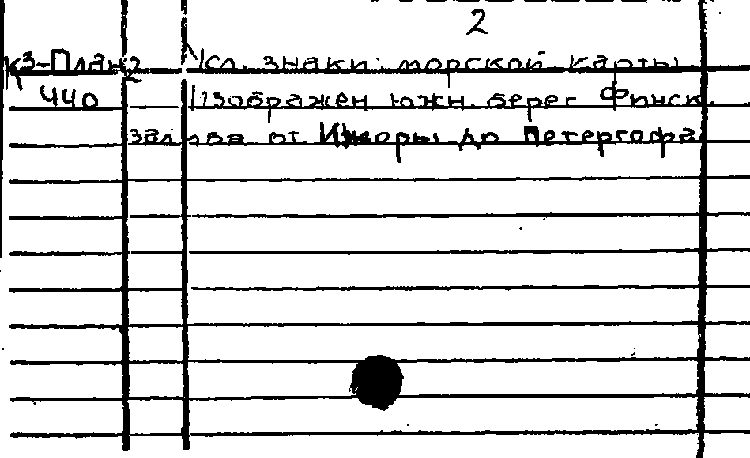 2
К3-План 2 Усл. знаки: морской карты
440 Изображен южн. берег Финск.
залива от Ижоры до Петергофа